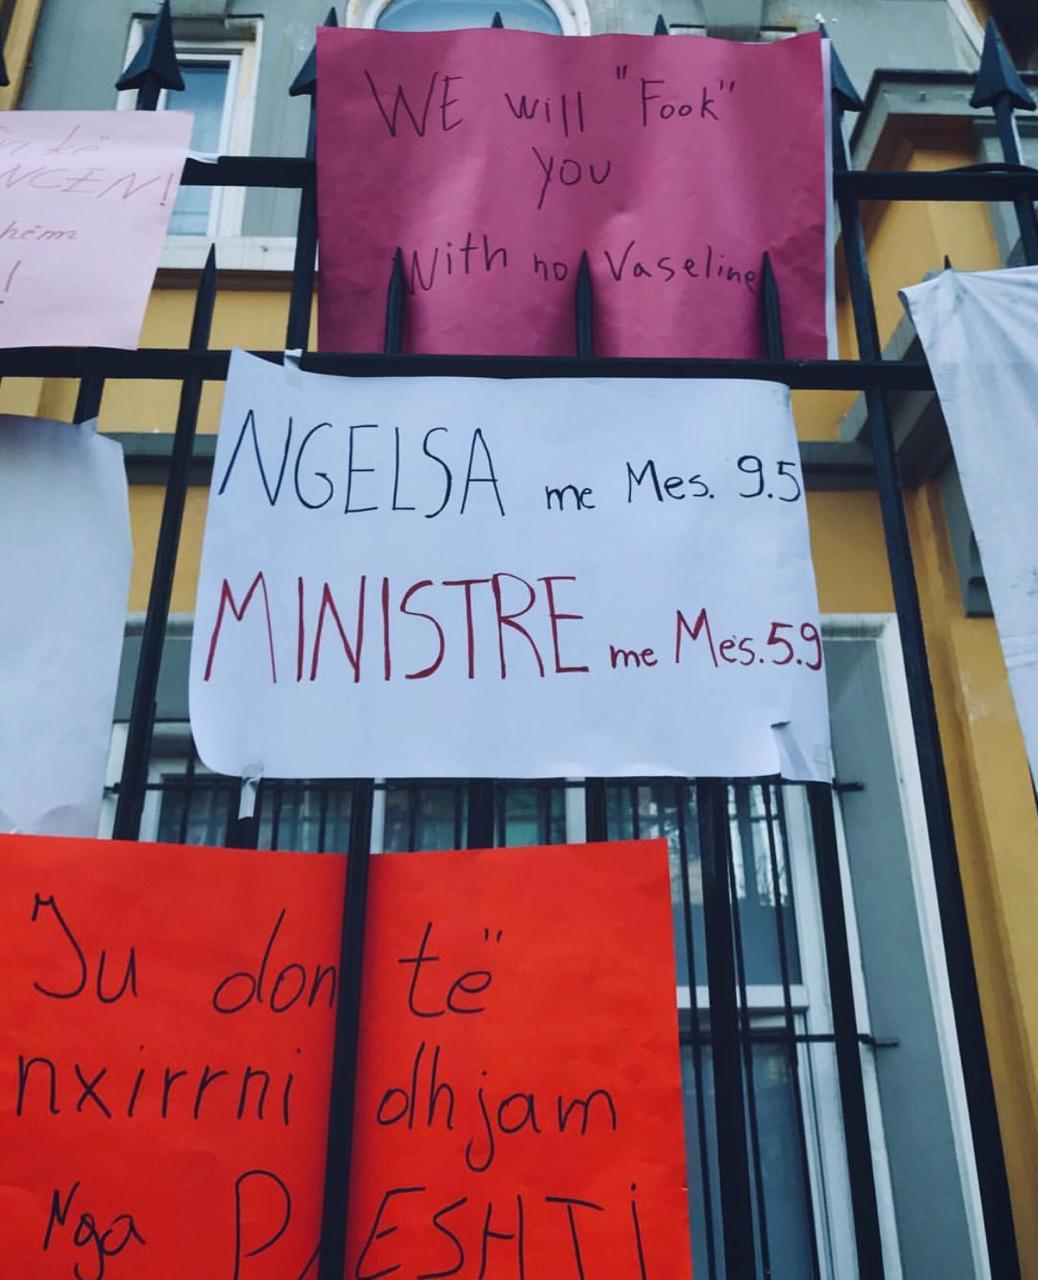 WE will "Fook"
you
With no Vaseline
NCEN!
hëm
!
NGELSA me Mes. 9.5
MINISTRE me Mes. 5.9
Ju don të
nxirrni dhjam
Nga PLESHTI